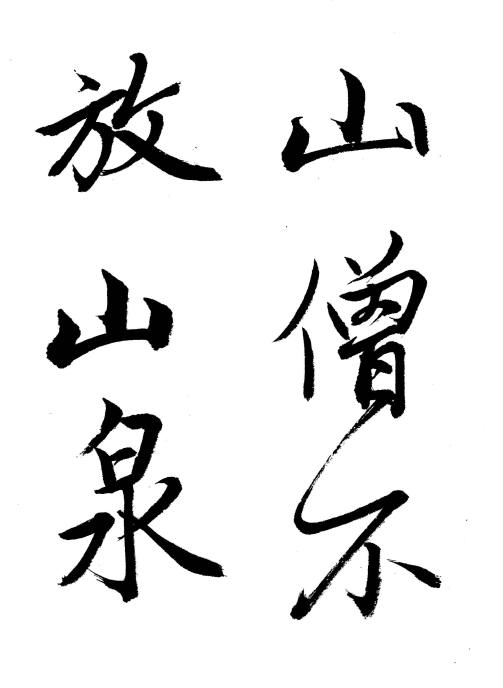 山僧不
放山泉